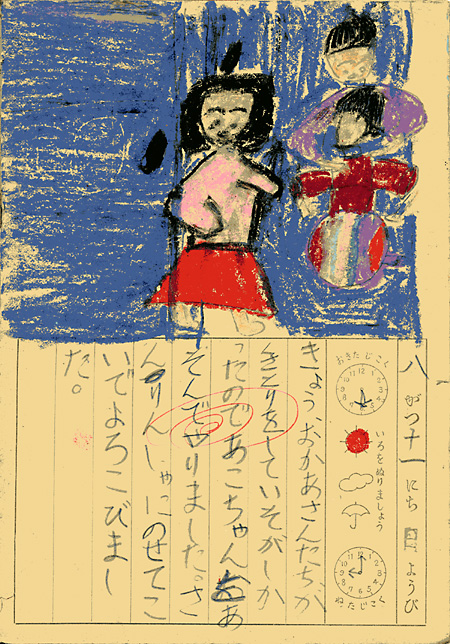 八がつ十一にち ようび
おきたじこく
いろをぬりましょう
ねたじこく
きょうおかあさんたちが
していそがしか
ったのであこちゃんとあ
そんでやりました。さ
んりんしゃにのせてこ
いでよろこびまし
た。